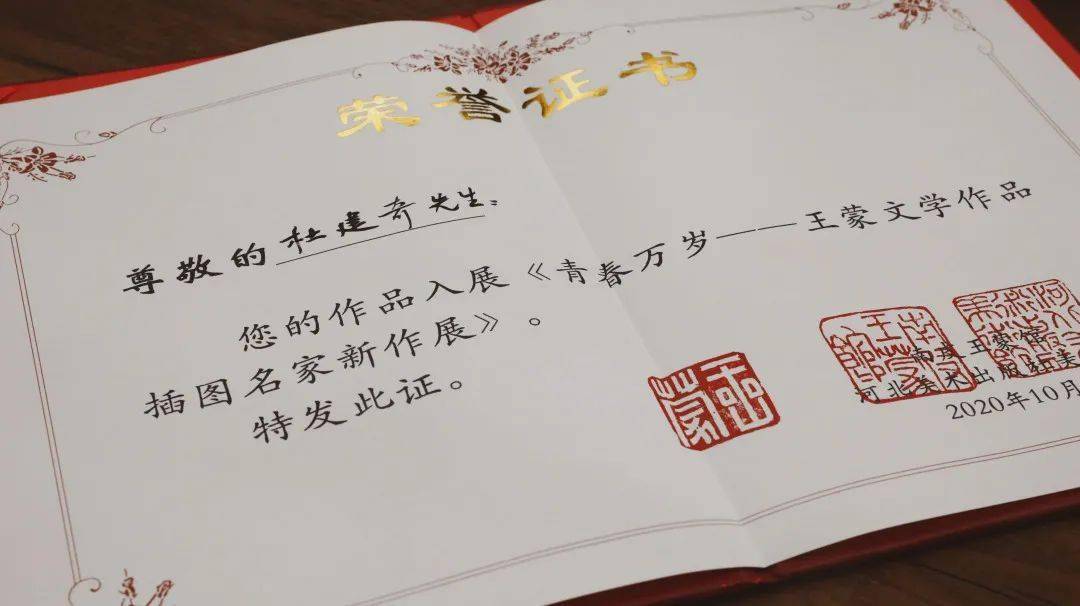 荣誉证书
尊敬的杜建奇先生:
您的作品入展《青春万岁——王蒙文学作品
插图名家新作展》。
特发此证。
王蒙
南皮王蒙馆
河北美术出版社美
2020年10月